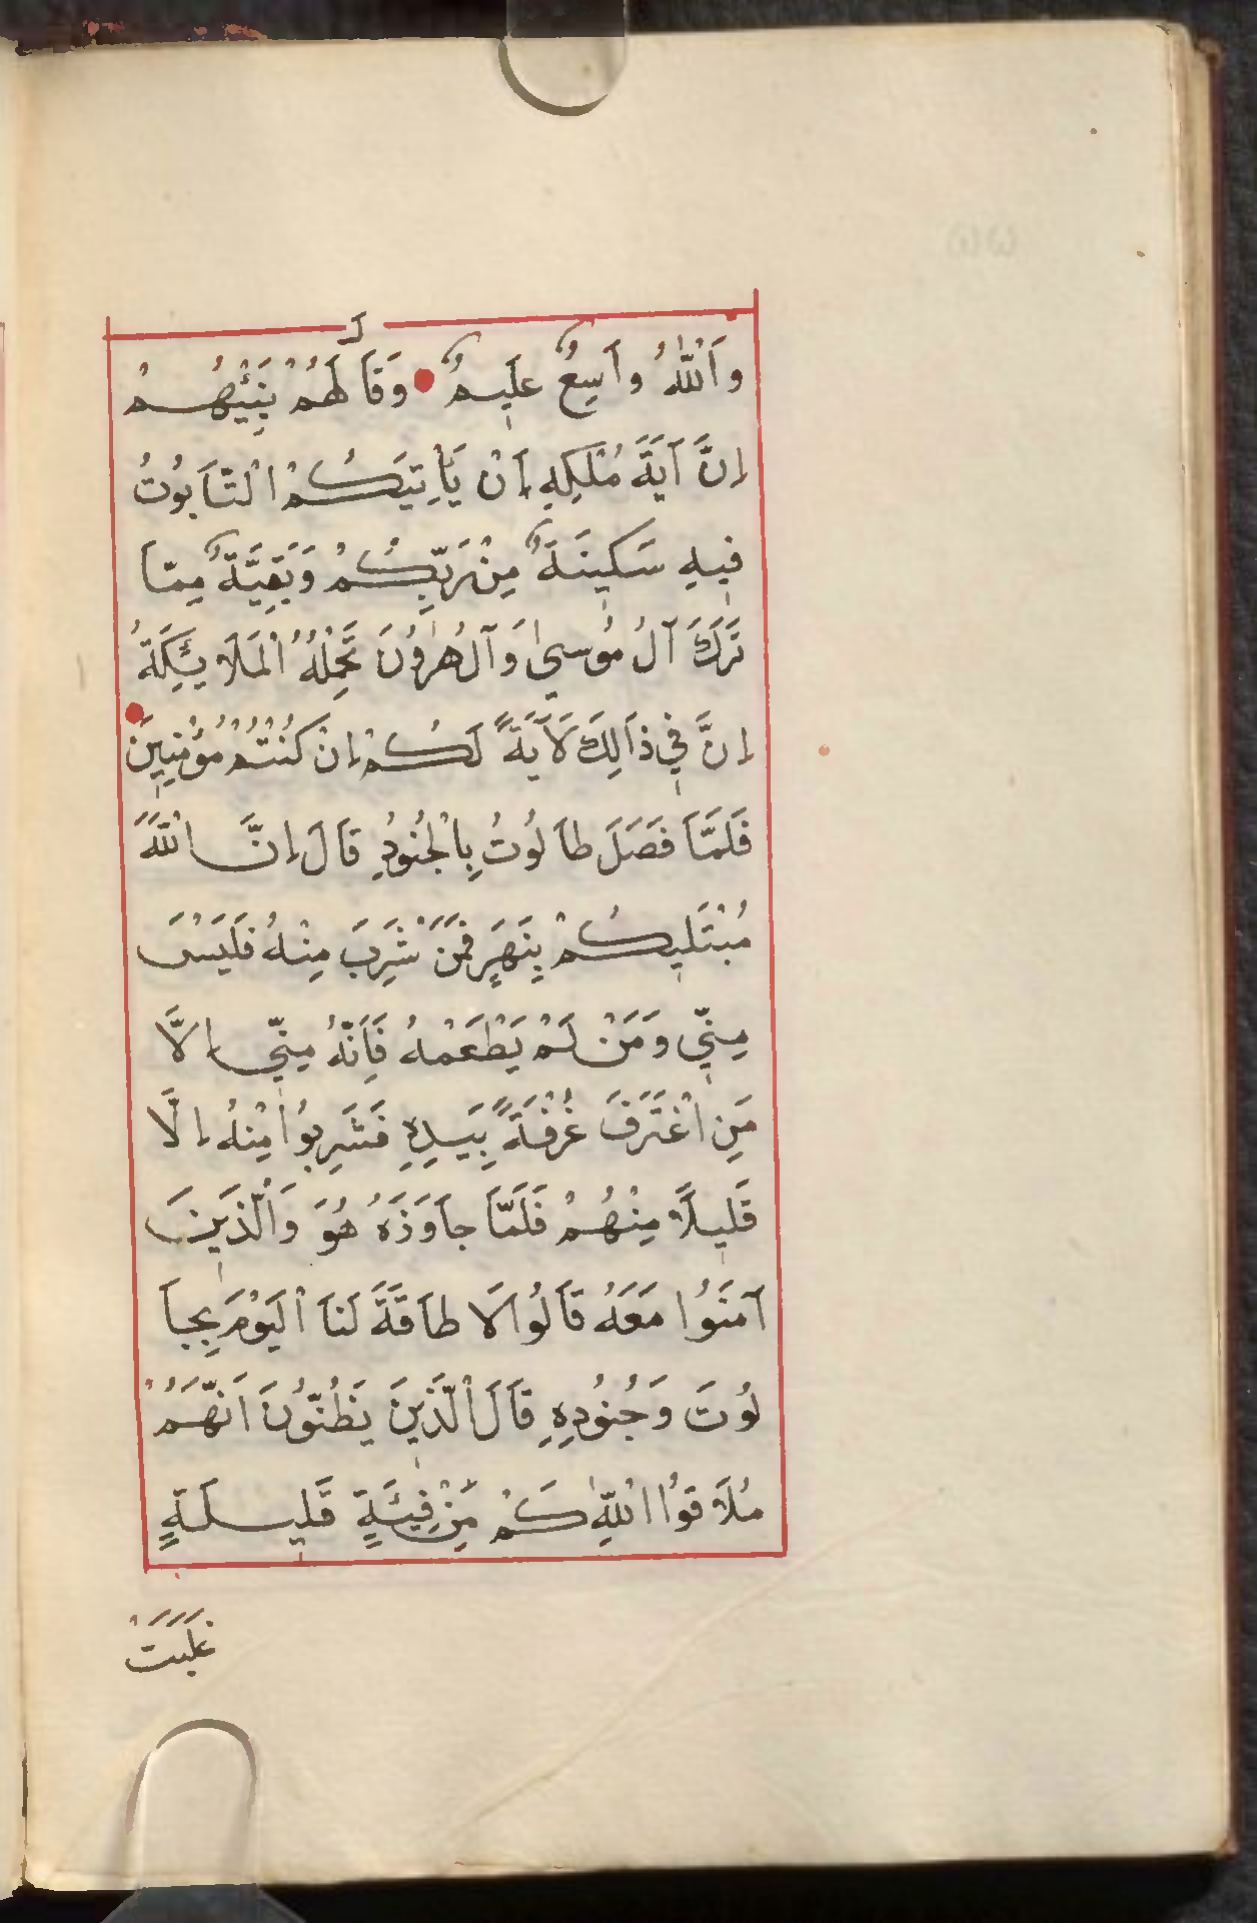 وَاَللّٰهُ وَاَسِعٌ عَلَيِمٌ وَقَاَ لَهُمْ نَبِيُّهُمْ
اِنَّ آيَةَ مُلْكِهِ اَنْ يَاْتِيَكُمُ الْتَّاَبُوتُ
فِيهِ سَكِينَةٌ مِنْ رَبِّكُمْ وَبَقِيَّةٌ مِمَّاَ
تَرَكَ آلُ مُوسىٰ وَآلُ هٰرُوُنَ تَحْمِلُهُ الْمَلَائِكَةُ
اِنَّ فِي ذَاَلِكَ لَآيَةً لَكُمْ اِنْ كُنْتُمْ مُؤْمِنِينَ
فَلَمَّاَ فَصَلَ طاَلُوتُ بِالْجُنُودِ قَاَلَ اِنَّ اللّٰهَ
مُبْتَلِيكُمْ بِنَهَرٍ فَمَنْ شَرِبَ مِنْهُ فَلَيْسَ
مِنِّي وَمَنْ لَمْ يَطْعَمْهُ فَاِنَّهُ مِنِّي اِلَّا
مَنِ اغْتَرَفَ غُرْفَةً بِيَدِهِ فَشَرِبُوا مِنْهُ اِلَّا
قَلِيلًا مِنْهُمْ فَلَمَّاَ جاَوَزَهُ هُوَ وَاَلَّذِينَ
آمَنُوا مَعَهُ قاَلُوا لَا طاَقَةَ لَناَ الْيَوْمَ بِجاَ
لُوتَ وَجُنُودِهِ قَاَلَ اَلَّذِينَ يَظُنُّونَ اَنَّهُمْ
مُلَاقُوا اللّٰهِ كَمْ مِنْ فِيئَةٍ قَلِيلَةٍ
غَلَبَتْ